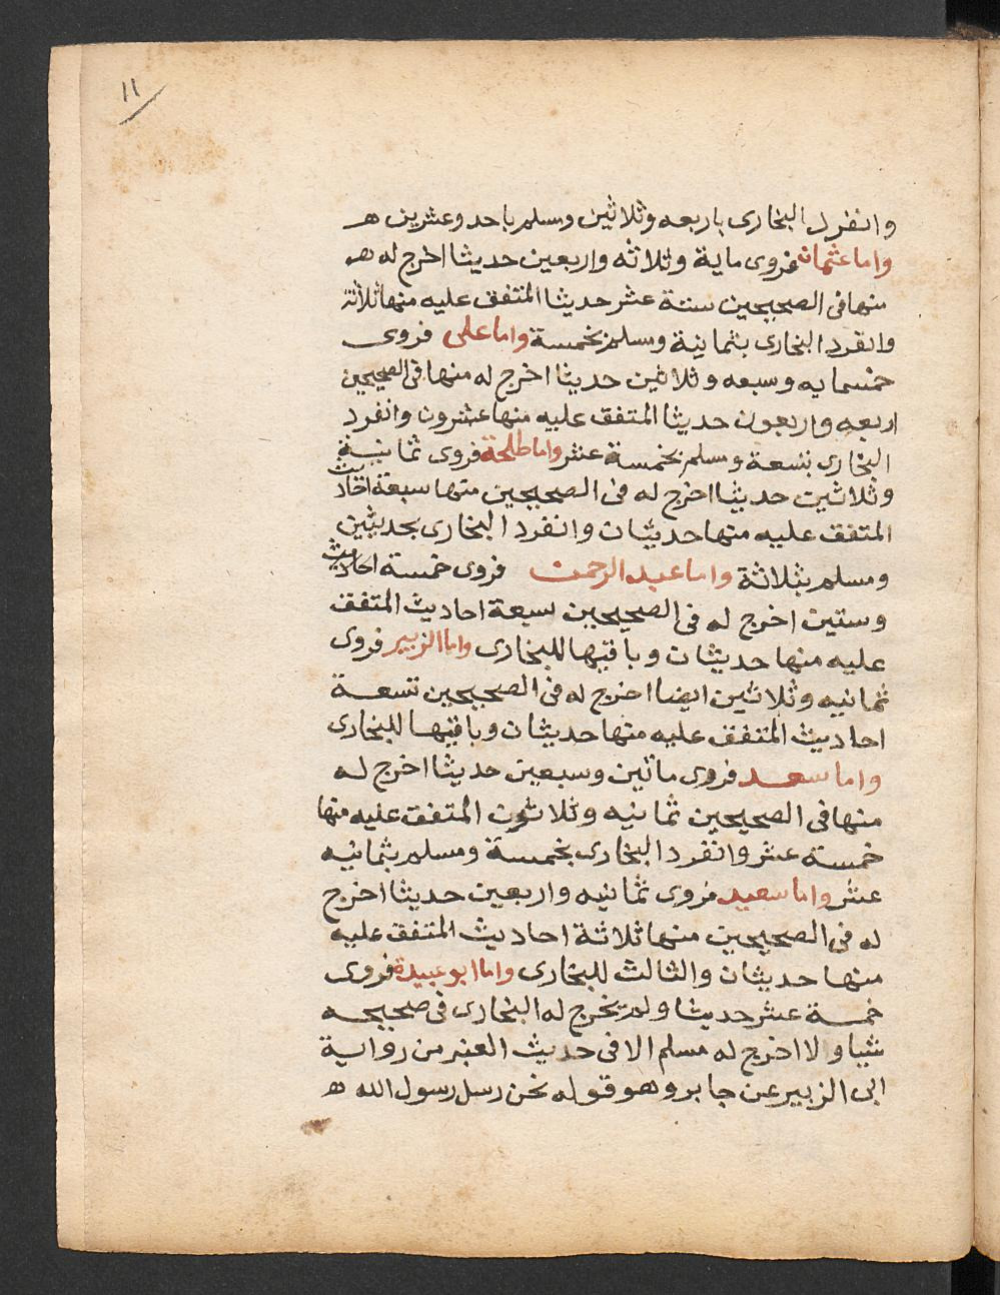 ١١
وانفرد البخارى باربعه وثلاثين ومسلم باحد وعشرين ھ
واما عثمان فروى ماية وثلاثه واربعين حديثا اخرج له ھ
منها فى الصحيحين ستة عشر حديثا المتفق عليه منها ثلاثة
وانفرد البخارى بثمانية ومسلم بخمسة واما على فروى
خمسمايه وسبعه وثلاثين حديثا اخرج له منها فى الصحيحين
اربعه واربعون حديثا المتفق عليه منها عشرون وانفرد
البخارى بتسعة ومسلم بخمسة عشر واما طلحة فروى ثمانية
وثلاثين حديثا اخرج له فى الصحيحين منها سبعة احاديث
المتفق عليه منها حديثان وانفرد البخارى بحديثين
ومسلم بثلاثة واما عبد الرحمن فروى خمسة احاديث
وستين اخرج له فى الصحيحين سبعة احاديث المتفق
عليه منها حديثان وباقيها للبخارى واما الزبير فروى
ثمانيه وثلاثين ايضا اخرج له فى الصحيحين تسعة
احاديث المتفق عليه منها حديثان وباقيها للبخارى
واما سعد فروى مائين وسبعين حديثا اخرج له
منها فى الصحيحين ثمانيه وثلاثون المتفق عليه منها
خمسة عشر وانفرد البخارى بخمسة ومسلم بثمانيه
عشر واما سعيد فروى ثمانيه واربعين حديثا اخرج
له فى الصحيحين منها ثلاثة احاديث المتفق عليه
منها حديثان والثالث للبخارى واما ابو عبيدة فروى
خمسة عشر حديثا ولم يخرج له البخارى فى صحيحه
شيا ولا اخرج له مسلم الا فى حديث العنبر من رواية
ابى الزبير عن جابر وهو قوله نحن رسل رسول الله ھ